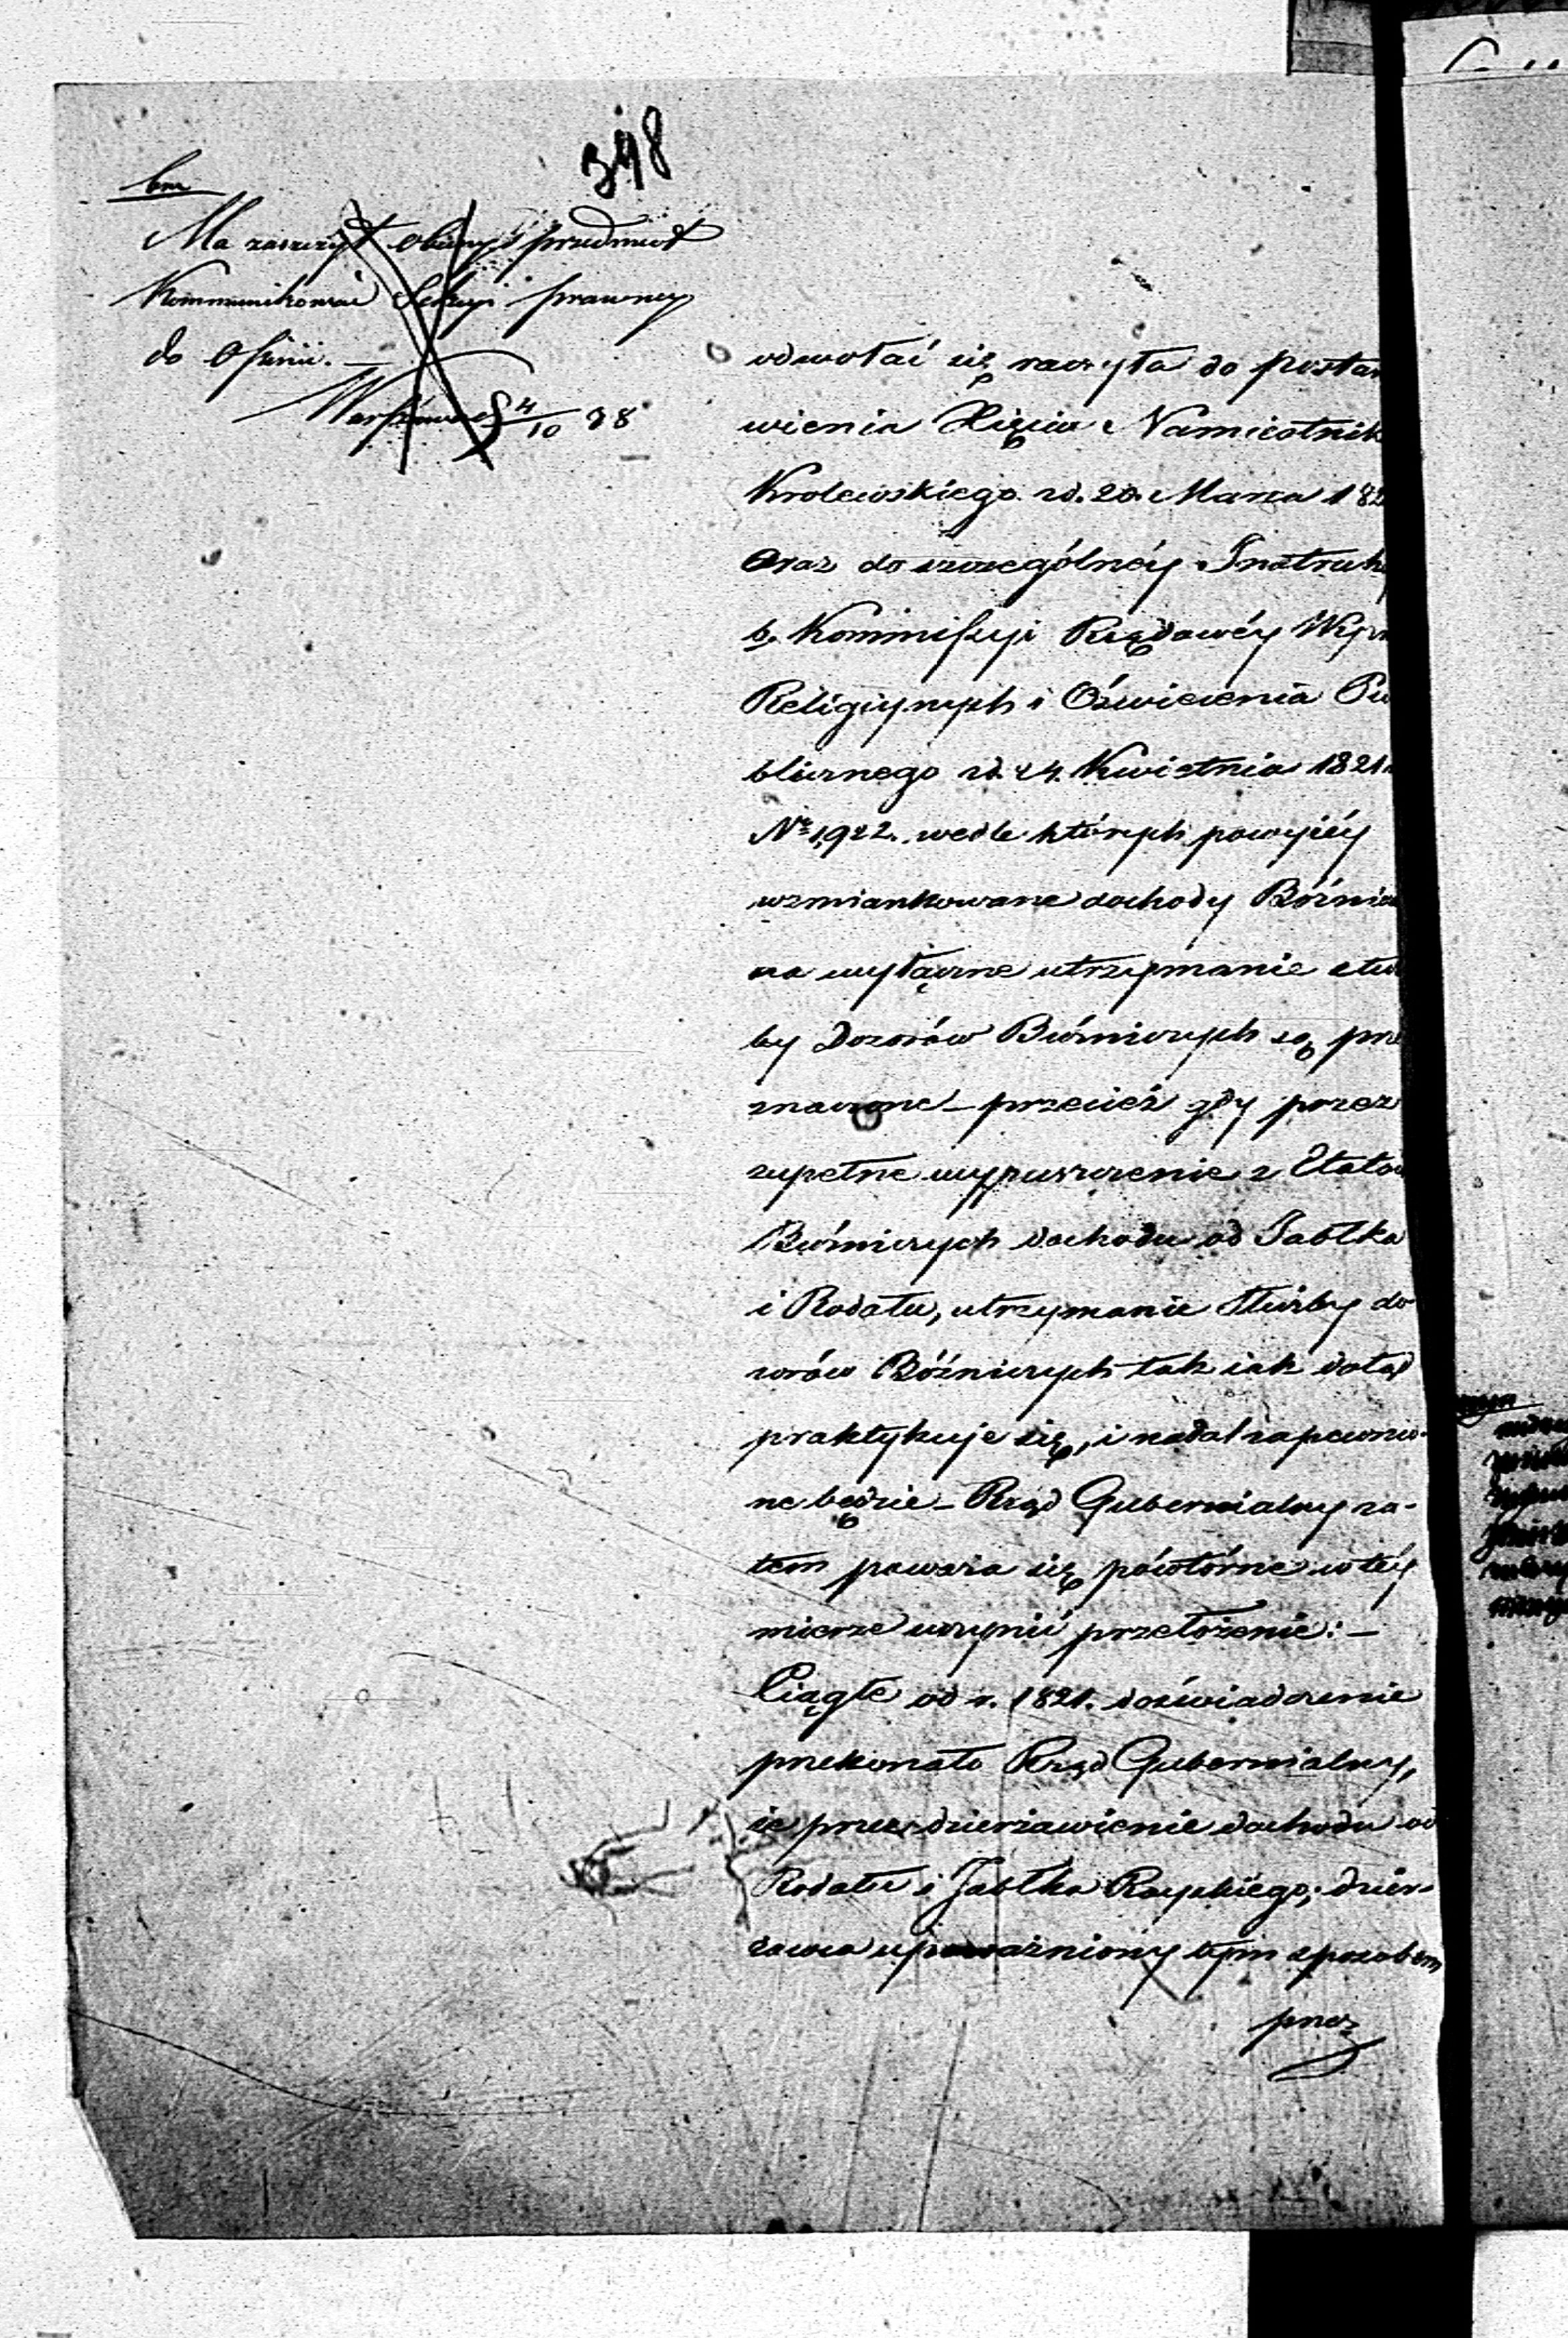 348
bm
Ma zaszczyt obecny przedmiot
Kommunikować Sekcyi prawney
do Opinii. —
Warszawa d 4/10 38
odwołać się raczyła do postan
wienia Xięcia Namiestnik
Krolewskiego z d. 20. Marca 182
Oraz do szczególnéy Instruk
b. Kommissyi Rządowéy Wyzn
Religiynych i Oświecenia Pu
blicznego z d. 24. Kwietnia 1821.
Nr 1,922. wedle których powyżéy
wzmiankowane dochody Bóżnic
na wyłączne utrzymanie służ
by Dozorów Bóżniczych są prze
znaczone — przecież gdy przez
zupełne wypuszczenie z Etatów
Bóżniczych dochodu od Jabłka
i Rodału, utrzymanie Służby do
zorów Bóżniczych tak iak dotąd
praktykuje się, i nadal zapewnio-
ne będzie — Rząd Gubernialny za-
tem poważa się powtórnie w téy
mierze uczynić przełożenie: —
Ciągłe od r. 1821. doświadczenie
przekonało Rząd Gubernialny,
iż przez dzierżawienie dochodu od
Rodału i Jabłka Rayskiego, dzier-
żawca upoważniony tym sposobem
przez